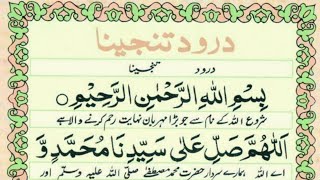 درود تنجینا
درود تنجینا
بِسْمِ اللهِ الرَّحْمٰنِ الرَّحِيْمِ ○
شروع اللہ کے نام سے جو بڑا مہربان نہایت رحم کرنے والا ہے
اَللّٰهُمَّ صَلِّ عَلٰى سَيِّدِنَا مُحَمَّدٍ وَّ
اے اللہ ہمارے سردار حضرت محمد مصطفےٰ صلی اللہ علیہ وسلم اور